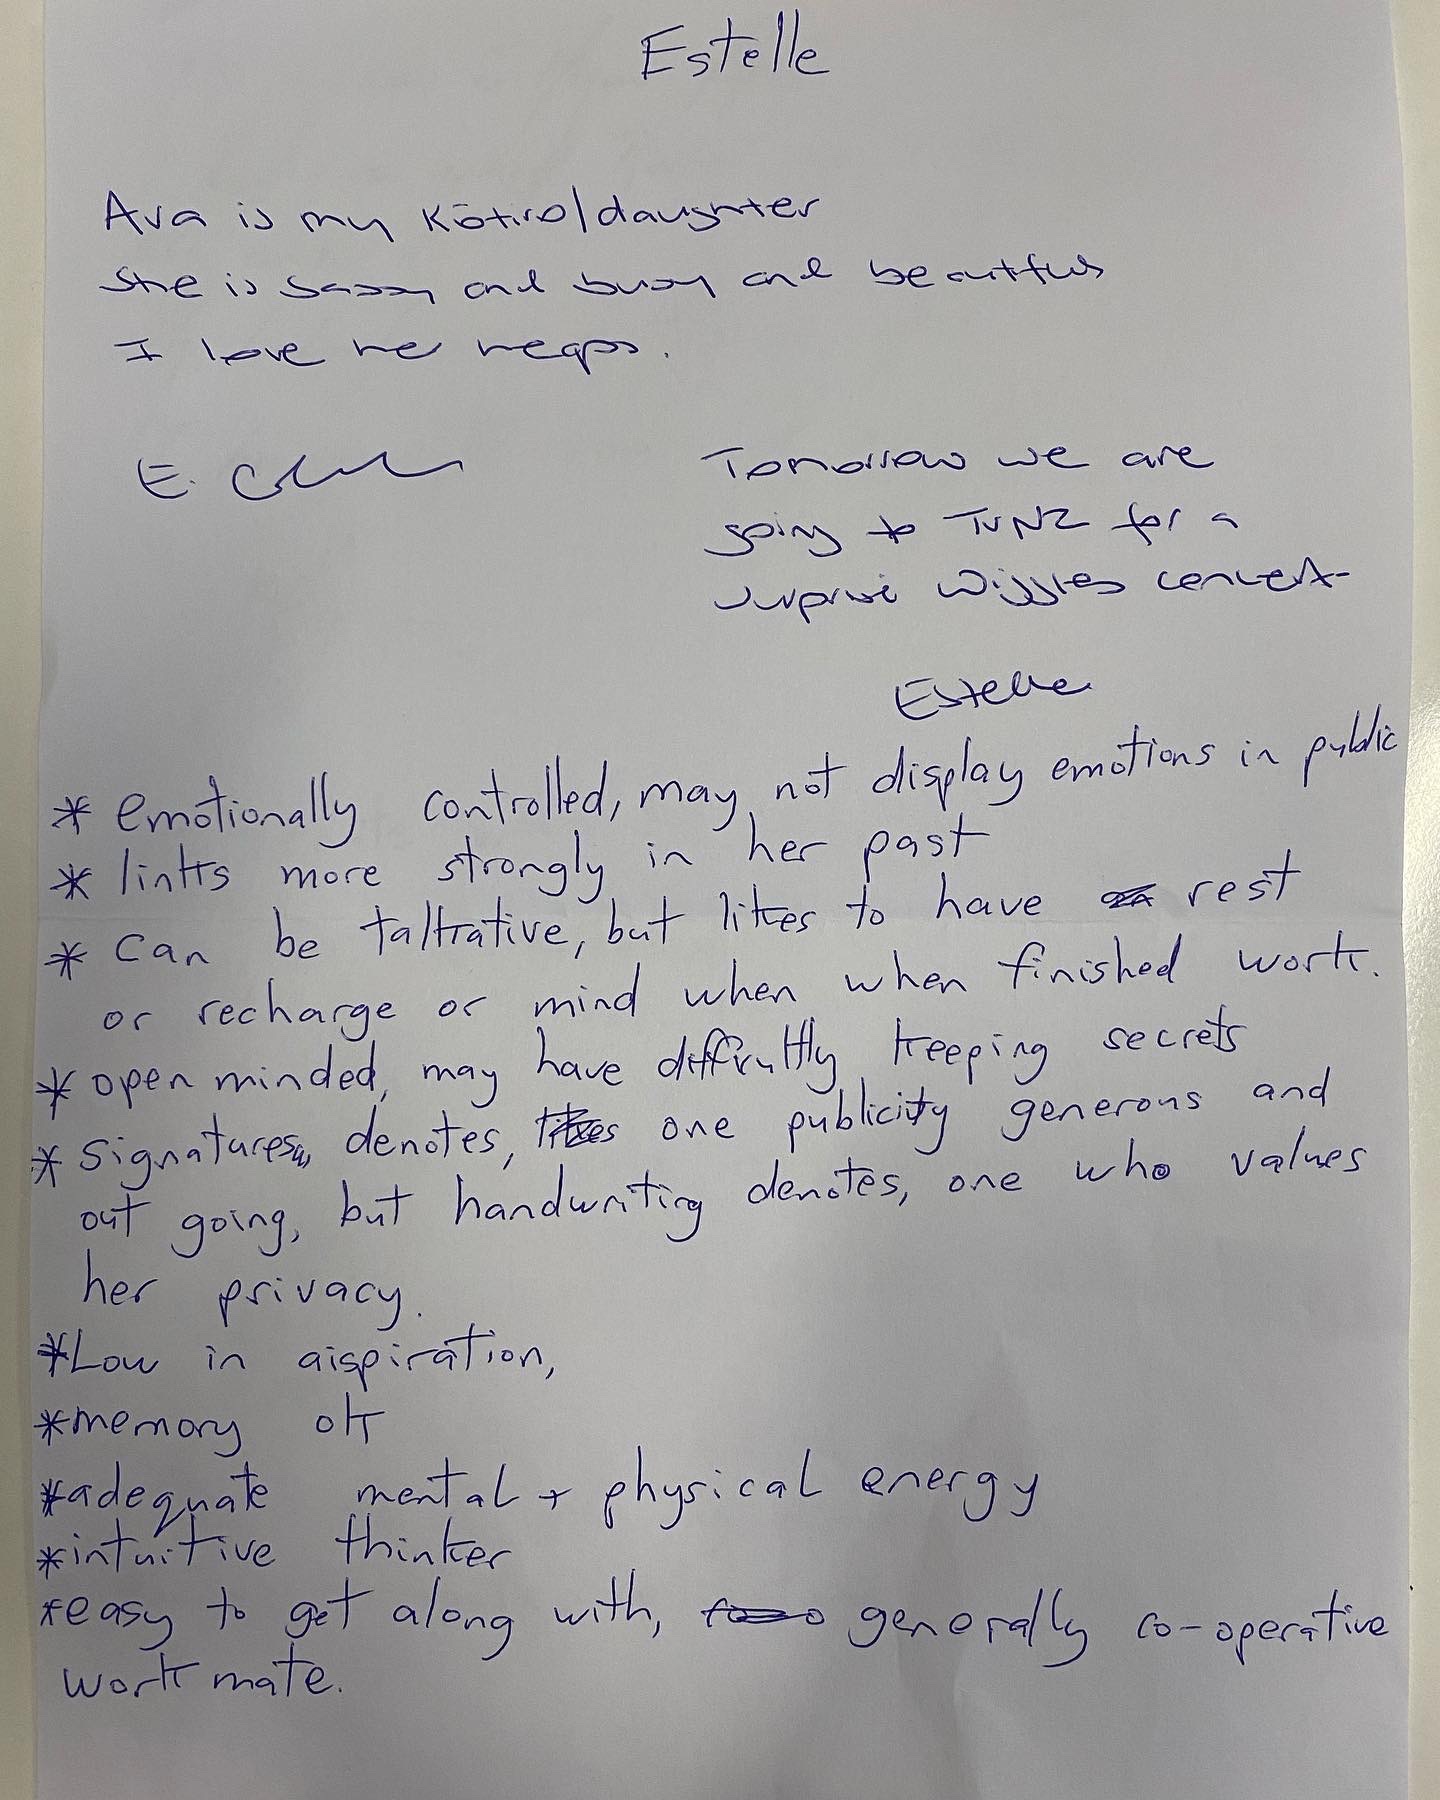 Estelle
Ava is my Kōtiro/daughter
She is sassy and busy and beautiful
I love her heaps.
E.
Tomorrow we are
going to TVNZ for a
surprise Wiggles concert
Estelle
* emotionally controlled, may not display emotions in public
* links more strongly in her past
* Can be talkative, but likes to have rest
or recharge or mind when when finished work.
* open minded, may have difficultly keeping secrets
* Signatures, denotes, one publicity generous and
out going, but handwriting denotes, one who values
her privacy.
* Low in aispiration,
* memory ok
* adequate mental + physical energy
* intuitive thinker
* easy to get along with, generally co-operative
work mate.